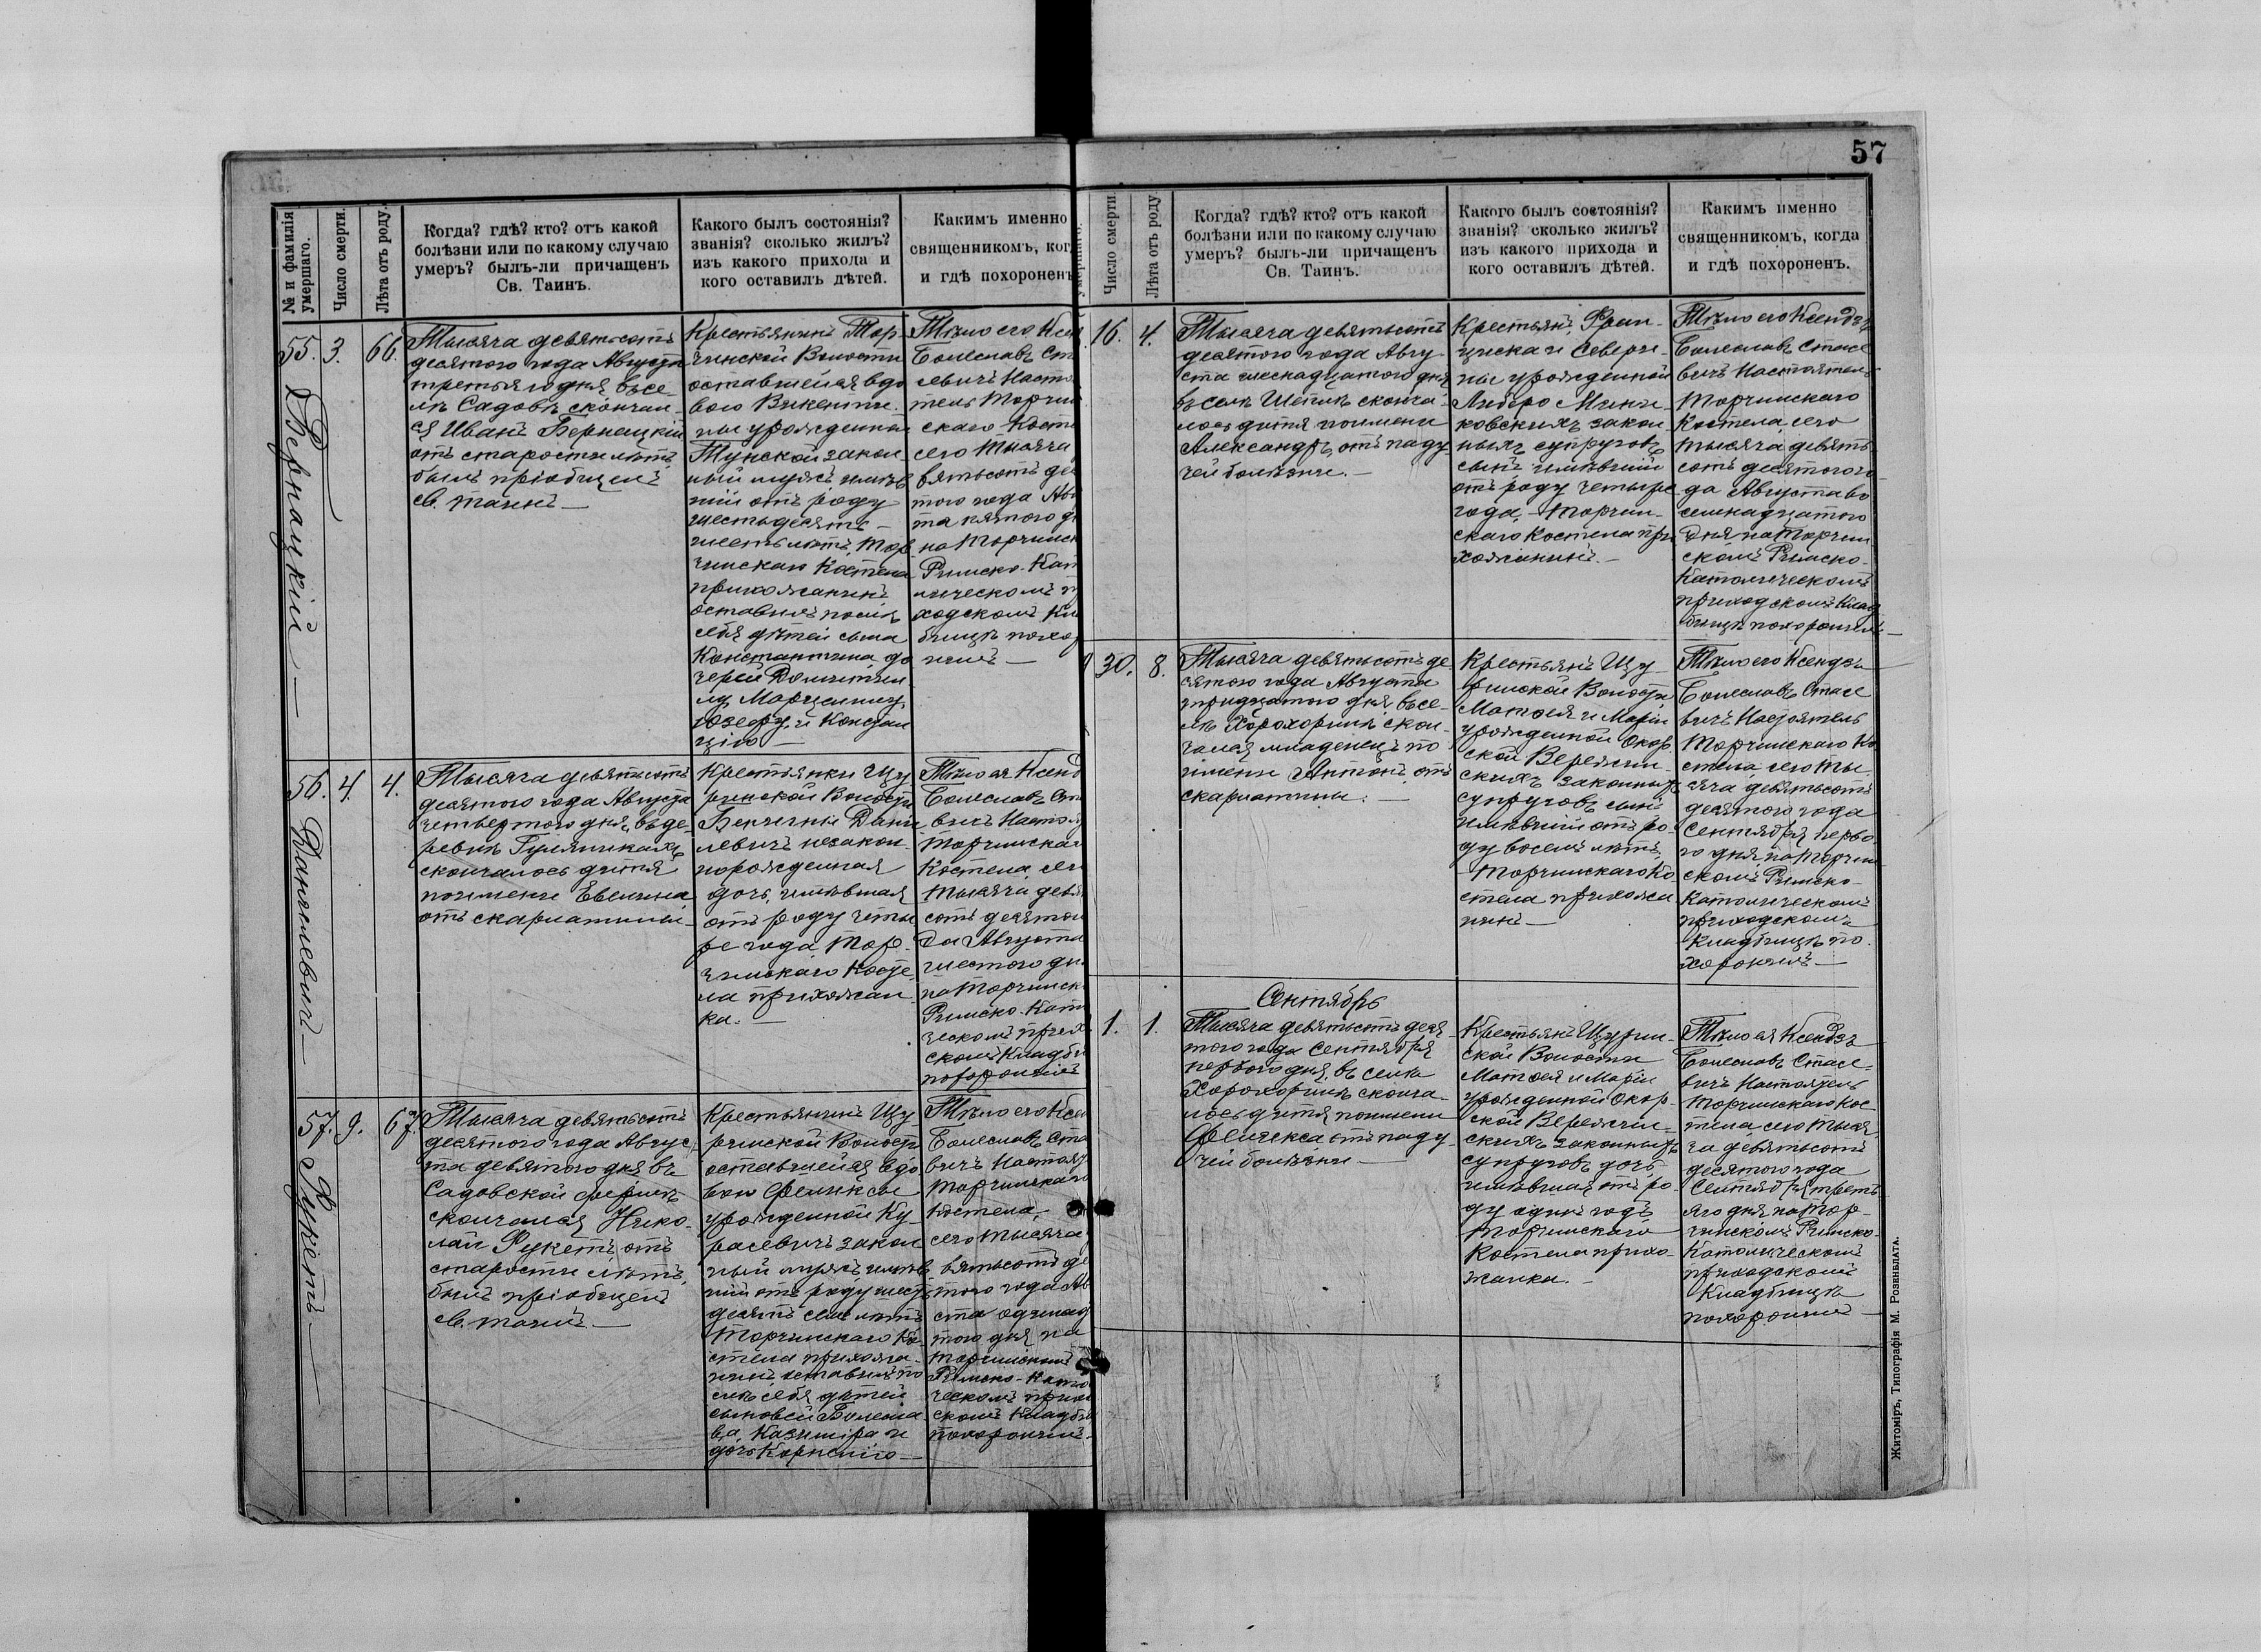 57
№ и фамилія
умершаго.
Число смерти.
Лѣта отъ роду.
Когда? гдѣ? кто? отъ какой
болѣзни или по какому случаю
умеръ? былъ-ли причащенъ
Св. Таинъ.
Какого былъ состоянія?
званія? сколько жилъ?
изъ какого прихода и
кого оставилъ дѣтей.
Какимъ именно
священникомъ, ког
и гдѣ похороненъ
55.
Бернацкій
3.
66.
Тысяча девятьсотъ
десятого года Августа
третьяго дня въ се-
лѣ Садовѣ скончал-
ся Иванъ Бернацкій
отъ старости лѣтъ,
былъ пріобщенъ
св. таинъ —
Крестьянинъ Тор-
чинской Волости
оставшейся вдо
вою Викенти-
ны урожденной
закон-
ный мужъ имѣв
шій отъ роду
шестьдесятъ —
шесть лѣтъ, Тор
чинскаго Костела
прихожанинъ
оставилъ послѣ
себя дѣтей сына
Константина, до
черей
лу, Марцелину,
Юзефу, и Констан
цію —
Тѣло его Ксен
Болеславъ Ст
севичъ Насто
тель Торчин
скаго Косте
сего Тысяча
вятьсотъ де
того года Ав
та пятого д
на Торчинск
Римско-Кат
лическомъ п
ходскомъ Кл
бищѣ похор
нилъ —
56.
Данилевич —
4.
4.
Тысяча девятьсотъ
десятого года Августа
четвертого дня, въ де-
ревнѣ Гуляникахъ
скончалось дитя
по имени Евелина
отъ скарлатины —
Крестьянки Щу
ринской Волости
Дани
левичъ незакон-
норожденная
дочь, имѣвшая
отъ роду четы
ре года, Тор-
чинскаго Косте-
ла прихожан
ка. —
Тѣло ея Ксенд
Болеславъ Ст
вичъ Насто
Торчинскаг
Костела, се
тысяча девя
сотъ десятог
да Августа
шестого дн
на Торчинск
Римско-Кат
ческомъ прих
скомъ Кладби
похоронилъ
57.
Рукетъ —
9.
67.
Тысяча девятьсотъ
десятого года Авгус-
та девятого дня въ
Садовской фермѣ
скончался Нико-
лай Рукетъ, отъ
старости лѣтъ,
былъ пріобщенъ
св. таинъ —
Крестьянинъ Щу
ринской Волости
оставшейся вдо
вою Феликсы
урожденной Ку
расевичъ закон
ный мужъ имѣв
шій отъ роду шест
десятъ семь лѣтъ
Торчинскаго Ко
стела прихожа-
нинъ, оставилъ по
слѣ себя дѣтей
сыновей Болесла
ва, Казиміра и
дочь Корнелію —
Тѣло его Ксен
Болеславъ Ста
вичъ Настоя
Торчинскаго
Костела,
сего тысяча
вятьсотъ де
того года Ав
ста одинад
того дня на
Торчинскомъ
Римско-Като
ческомъ прихо
скомъ Кладби
похоронилъ.
умершаго.
Число смерти.
Лѣта отъ роду
Когда? гдѣ? кто? отъ какой
болѣзни или по какому случаю
умеръ? былъ-ли причащенъ
Св. Таинъ.
Какого былъ состоянія?
званія? сколько жилъ?
изъ какого прихода и
кого оставилъ дѣтей.
Какимъ именно
священникомъ, когда
и гдѣ похороненъ.
16.
4.
Тысяча девятьсотъ
десятого года Авгу
ста шеснадцатого дня
въ селѣ Шепнѣ сконча-
лось дитя по имени
Александръ, отъ паду
чей болѣзни. —
Крестьянъ, Фран-
циска и Севери-
ны урожденной
Минь-
ковскихъ закон
ныхъ супруговъ
сынъ имѣвшій
отъ роду четыре
года, — Торчин-
скаго Костела при
хожанинъ. —
Тѣло его Ксендзъ
Болеславъ Стасе
вичъ Настоятель
Торчинскаго
Костела, сего
тысяча девять
сотъ десятого го
да Августа во
семнадцатого
дня, на Торчин
скомъ Римско-
Католическомъ
приходскомъ Клад
бищѣ похоронилъ —
30.
8.
Тысяча девятьсотъ де
сятого года Августа
тридцатого дня, въ се-
лѣ Хорохоринѣ скон-
чался младенецъ по
имени Антонъ, отъ
скарлатины. —
Крестьянъ Щу
ринской Волости
Матвея и Маріи
урожденной Окор
ской Вережин-
скихъ законныхъ
супруговъ сынъ
имѣвшій отъ ро-
ду восемь лѣтъ,
Торчинскаго Ко
стела прихожа
нинъ —
Тѣло его Ксендзъ
Болеславъ Стасе
вичъ Настоятель
Торчинскаго Ко
стела сего ты-
сяча девятьсотъ
десятого года
Сентября перво
го дня на Торчин
скомъ Римско-
Католическомъ
приходскомъ
Кладбищѣ по-
хоронилъ —
Сентябрь
1.
1.
Тысяча девятьсотъ деся
того года Сентября
первого дня, въ селѣ
Хорохоринѣ сконча-
лось дитя по имени
Феликса отъ паду
чей болѣзни —
Крестьянъ Щурин-
ской Волости
Матвея и Маріи
урожденной Окор-
ской Вережин-
скихъ законныхъ
супруговъ дочь
имѣвшая отъ ро-
ду одинъ годъ
Торчинскаго
Костела прихо-
жанка. —
Тѣло ея Ксендзъ
Болеславъ Стасе-
вичъ Настоятель
Торчинскаго Кос-
тела, сего тыся
ча девятьсотъ
десятого года
Сентября треть
яго дня на Тор-
чинскомъ Римско-
Католическомъ
приходскомъ
Кладбищѣ
похоронилъ —
Житоміръ, Типографія М. Розенблата.